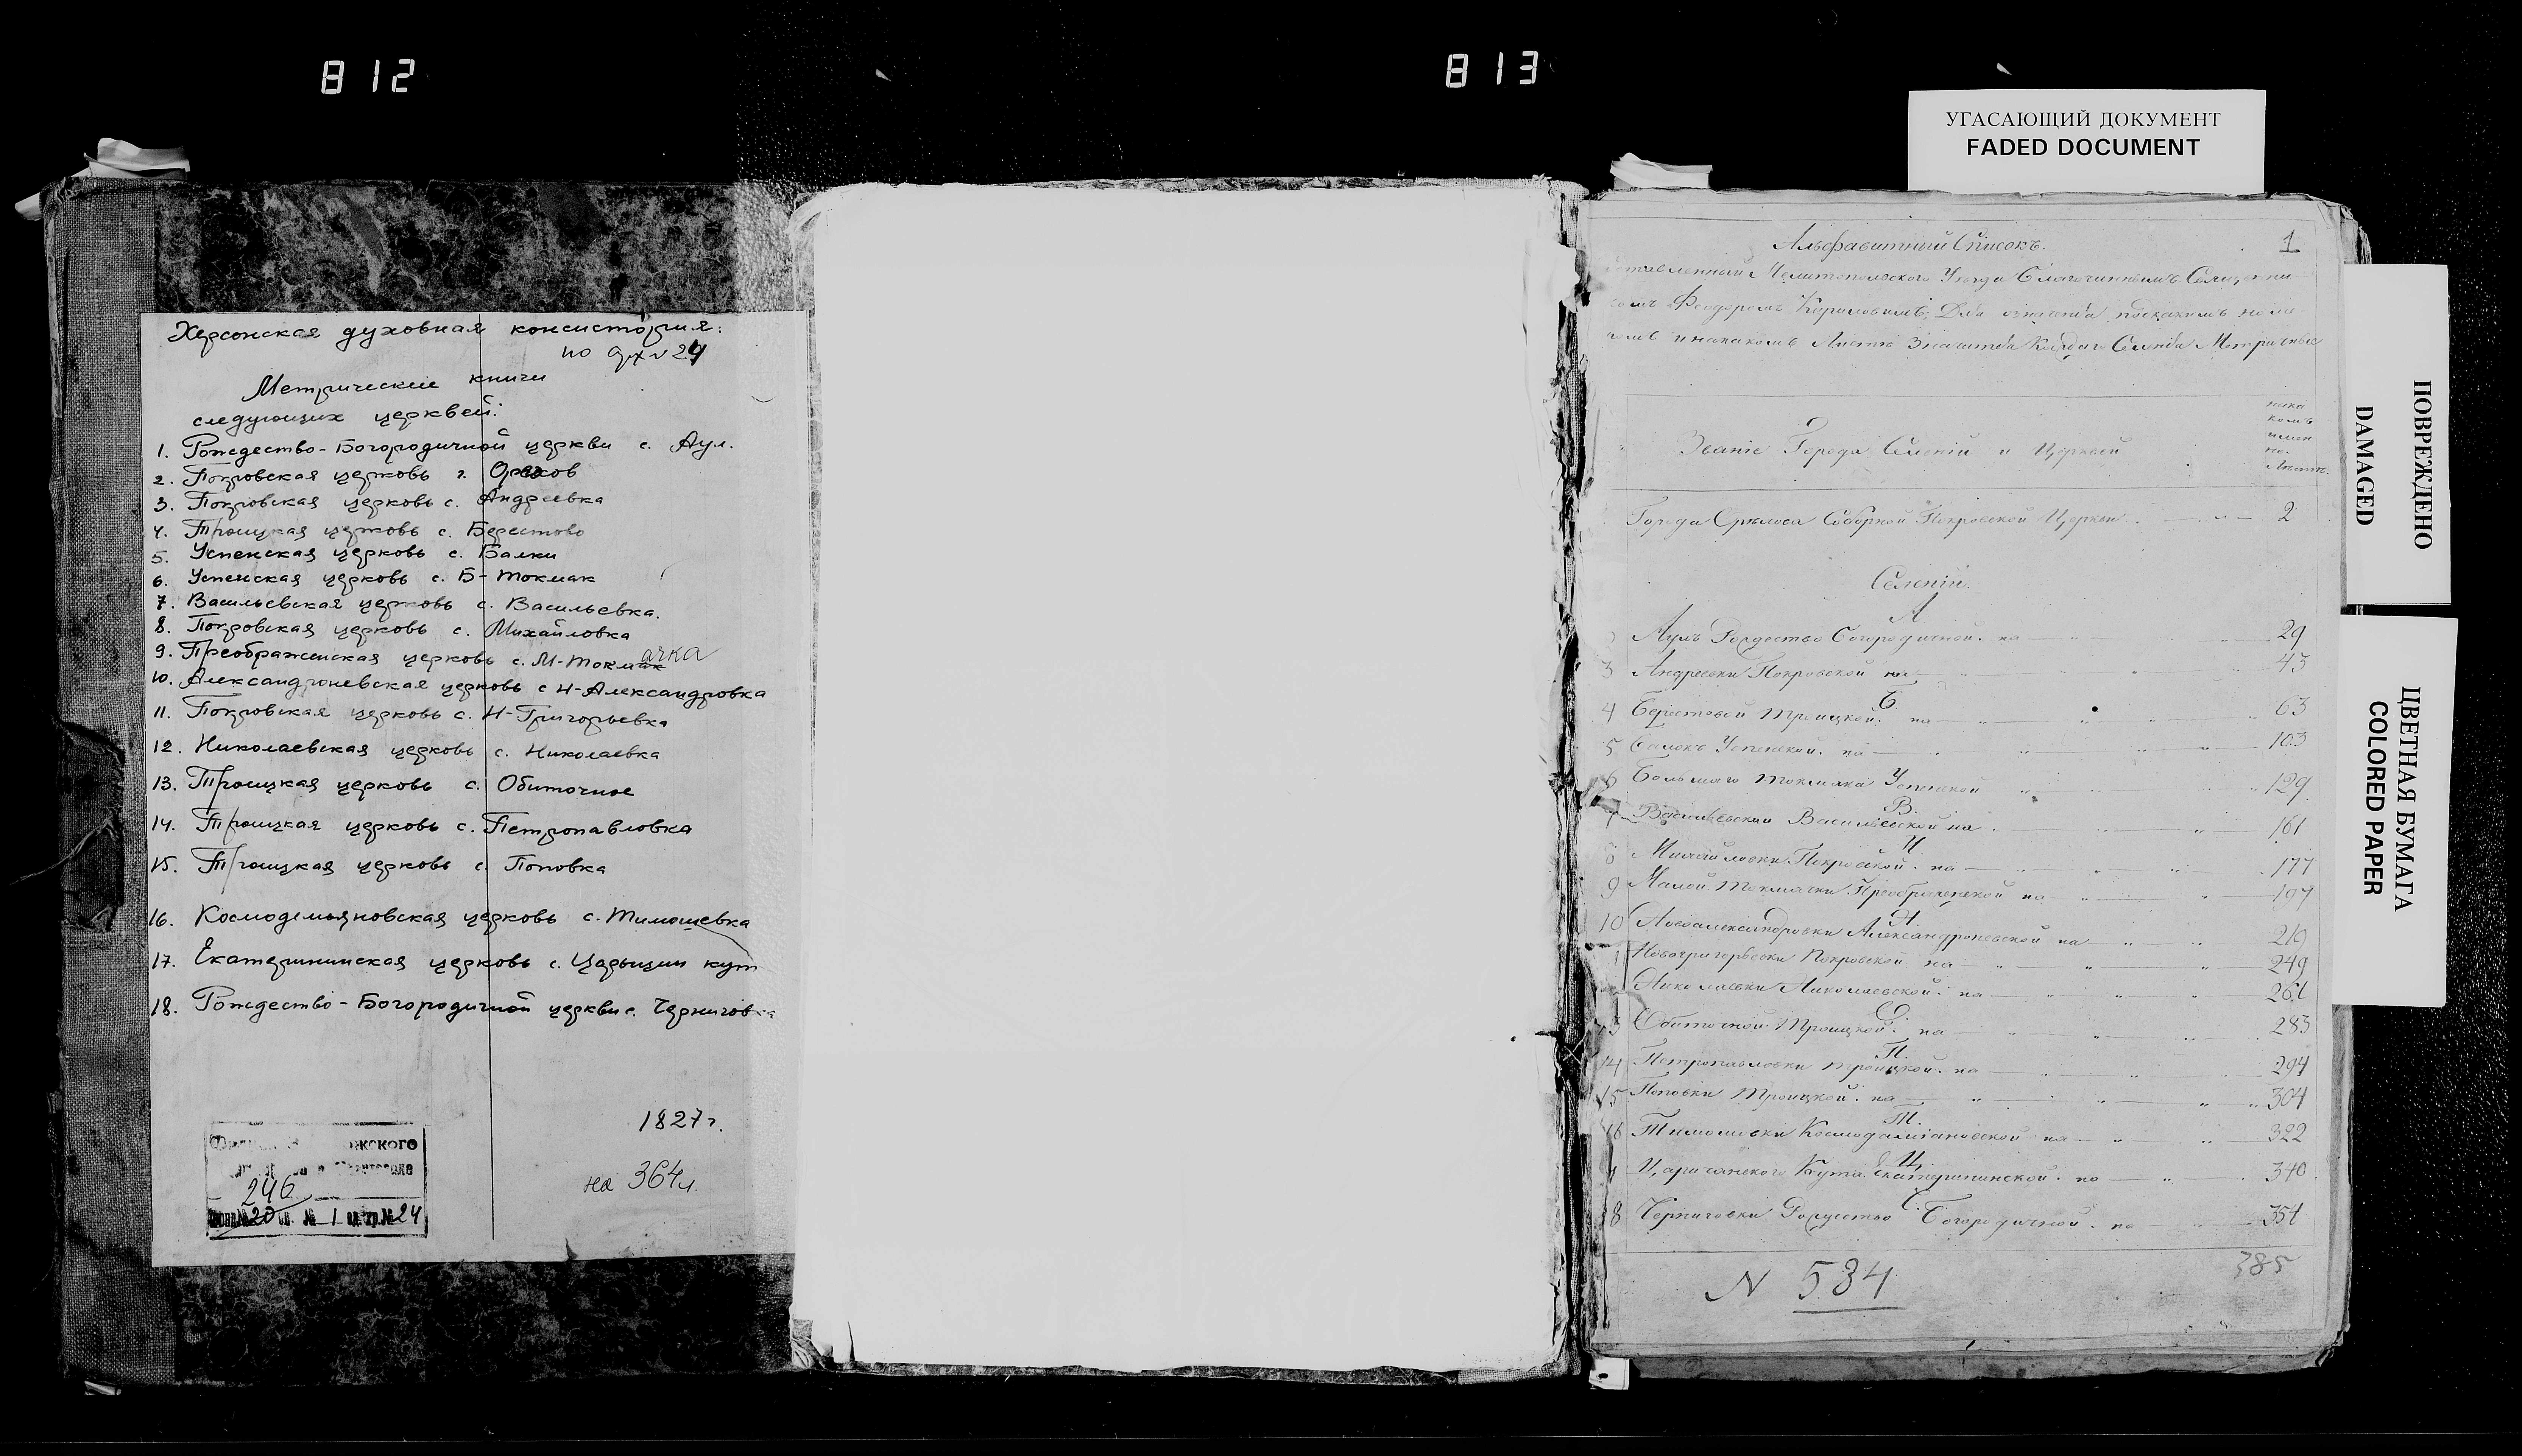 812
813
УГАСАЮЩИЙ ДОКУМЕНТ
FADED DOCUMENT
Херсонская духовная консистория:
Метрические книги
следующих церквей:
1. Рождество-Богородичной церкви с. Аул.
2. Покровская церковь г. Орехов
3. Покровская церковь с. Андреевка
4. Троицкая церковь с. Берестово
5. Успенская церковь с. Балки
6. Успенская церковь с. Б-Токмак
7. Васильевская церковь с. Васильевка.
8. Покровская церковь с. Михайловка
9. Преображенская церковь с. М-Токмачка
10. Александроневская церковь с Н-Александровка
11. Покровская церковь с. Н-Григорьевка
12. Николаевская церковь с. Николаевка
13. Троицкая церковь с. Обиточное
14. Троицкая церковь с. Петропавловка
15. Троицкая церковь с. Поповка
16. Космодемьяновская церковь с. Тимошевка
17. Екатерининская церковь с. Царьицин кут
18. Рождество-Богородичной церкви с. Черниговка
1827г.
на 364л.
246
20 1 24
Альфавитный Списокъ.
1
Мелитопольского Уезда Благочиннымъ
Феодоромъ
Листе Значится Метричные
Званіе Города Селеній и Церквей
Города Соборной Покровской Церкви 2
Селеній.
А
Аулъ Рождество Богородичной. на 29
3 Андреевки Покровской на 43
Б
4 Берестовой Троицкой. на 63
5 Балокъ Успенской. на 103
6 Большаго Токмака Успенской 129
В.
7 Васильевки Васильевской на 161
8 Михайловки Покровской. на 177
9 Малой Токмачки Преображенской на 197
Н.
10 Новоалександровки Александроневской на 219
Новогригорьевки Покровской на 249
Николаевки Николаевской. на 261
О
Обиточной Троицкой. на 283
П.
14 Петропавловки Троицкой. на 294
15 Поповки Троицкой. на 304
Т.
16 Тимошевки Космодамiановской на 322
Ц.
Кута Екатерининской. на 340
Ч.
18 Черниговки Рождество Богородичной. на 351
N 534
385
ПОВРЕЖДЕНО
DAMAGED
ЦВЕТНАЯ БУМАГА
COLORED PAPER